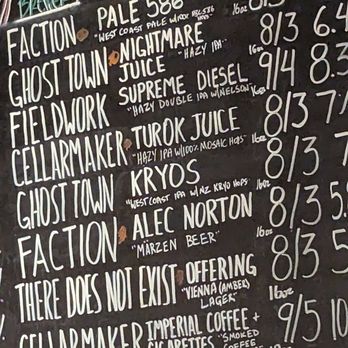 FACTION PALE 16oz 8/3 6.4
"WEST COAST PALE
GHOST TOWN NIGHTMARE JUICE 16oz 8/3
"HAZY IPA"
FIELDWORK SUPREME DIESEL 16oz 9/4 8.3
"HAZY DOUBLE IPA W/NELSON"
CELLARMAKER TUROK JUICE 16oz 8/3
"HAZY IPA W/100% MOSAIC HOPS"
GHOST TOWN KRYOS 16oz 8/3
"WEST COAST IPA W/NZ KRYO HOPS"
FACTION ALEC NORTON 16oz 8/3
"MÄRZEN BEER"
THERE DOES NOT EXIST OFFERING 16oz 8/3
"VIENNA (AMBER) LAGER"
CELLARMAKER IMPERIAL COFFEE + CIGARETTES 9/5 10
"SMOKED COFFEE